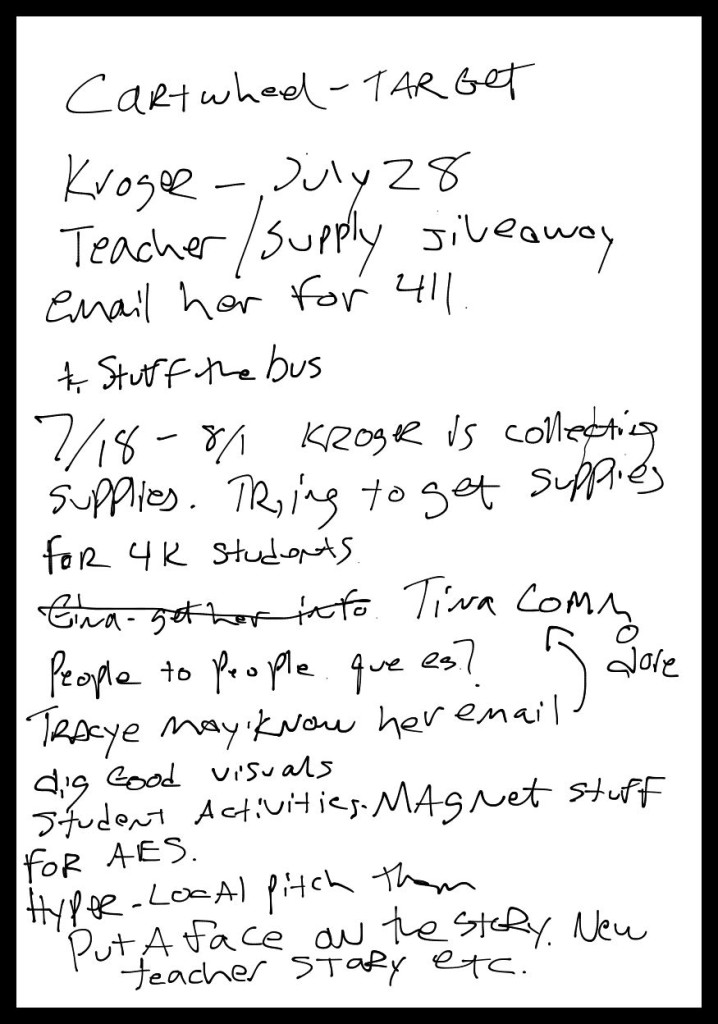 Cartwheel - TARGet
Kroger - July 28
Teacher/Supply giveaway
email her for 411.
+ Stuff the bus
7/18 - 8/1 Kroger is collecting
supplies. Trying to get supplies
for 4K students
Gina - get her info Tina Comm
o
dore
People to People que es?
Tracye may know her email
dig Good visuals
Student Activities. MAgNet stuff
for AES.
Hyper-Local pitch them
Put A face on the story. New
teacher story etc.